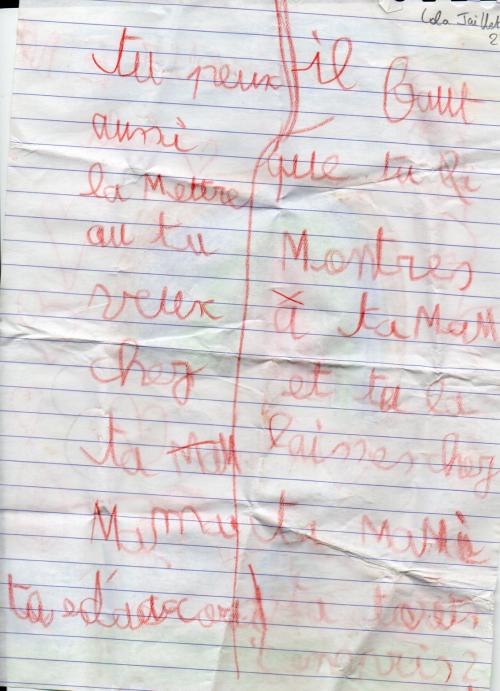 Lola Jaillet
2
tu peux
aussi
la Mettre
au tu
veux
chez
ta
Mamy
tu ed'adacor
il faut
que tu la
Montres
à ta MaM
et tu la
laisses chez
ta MaMi